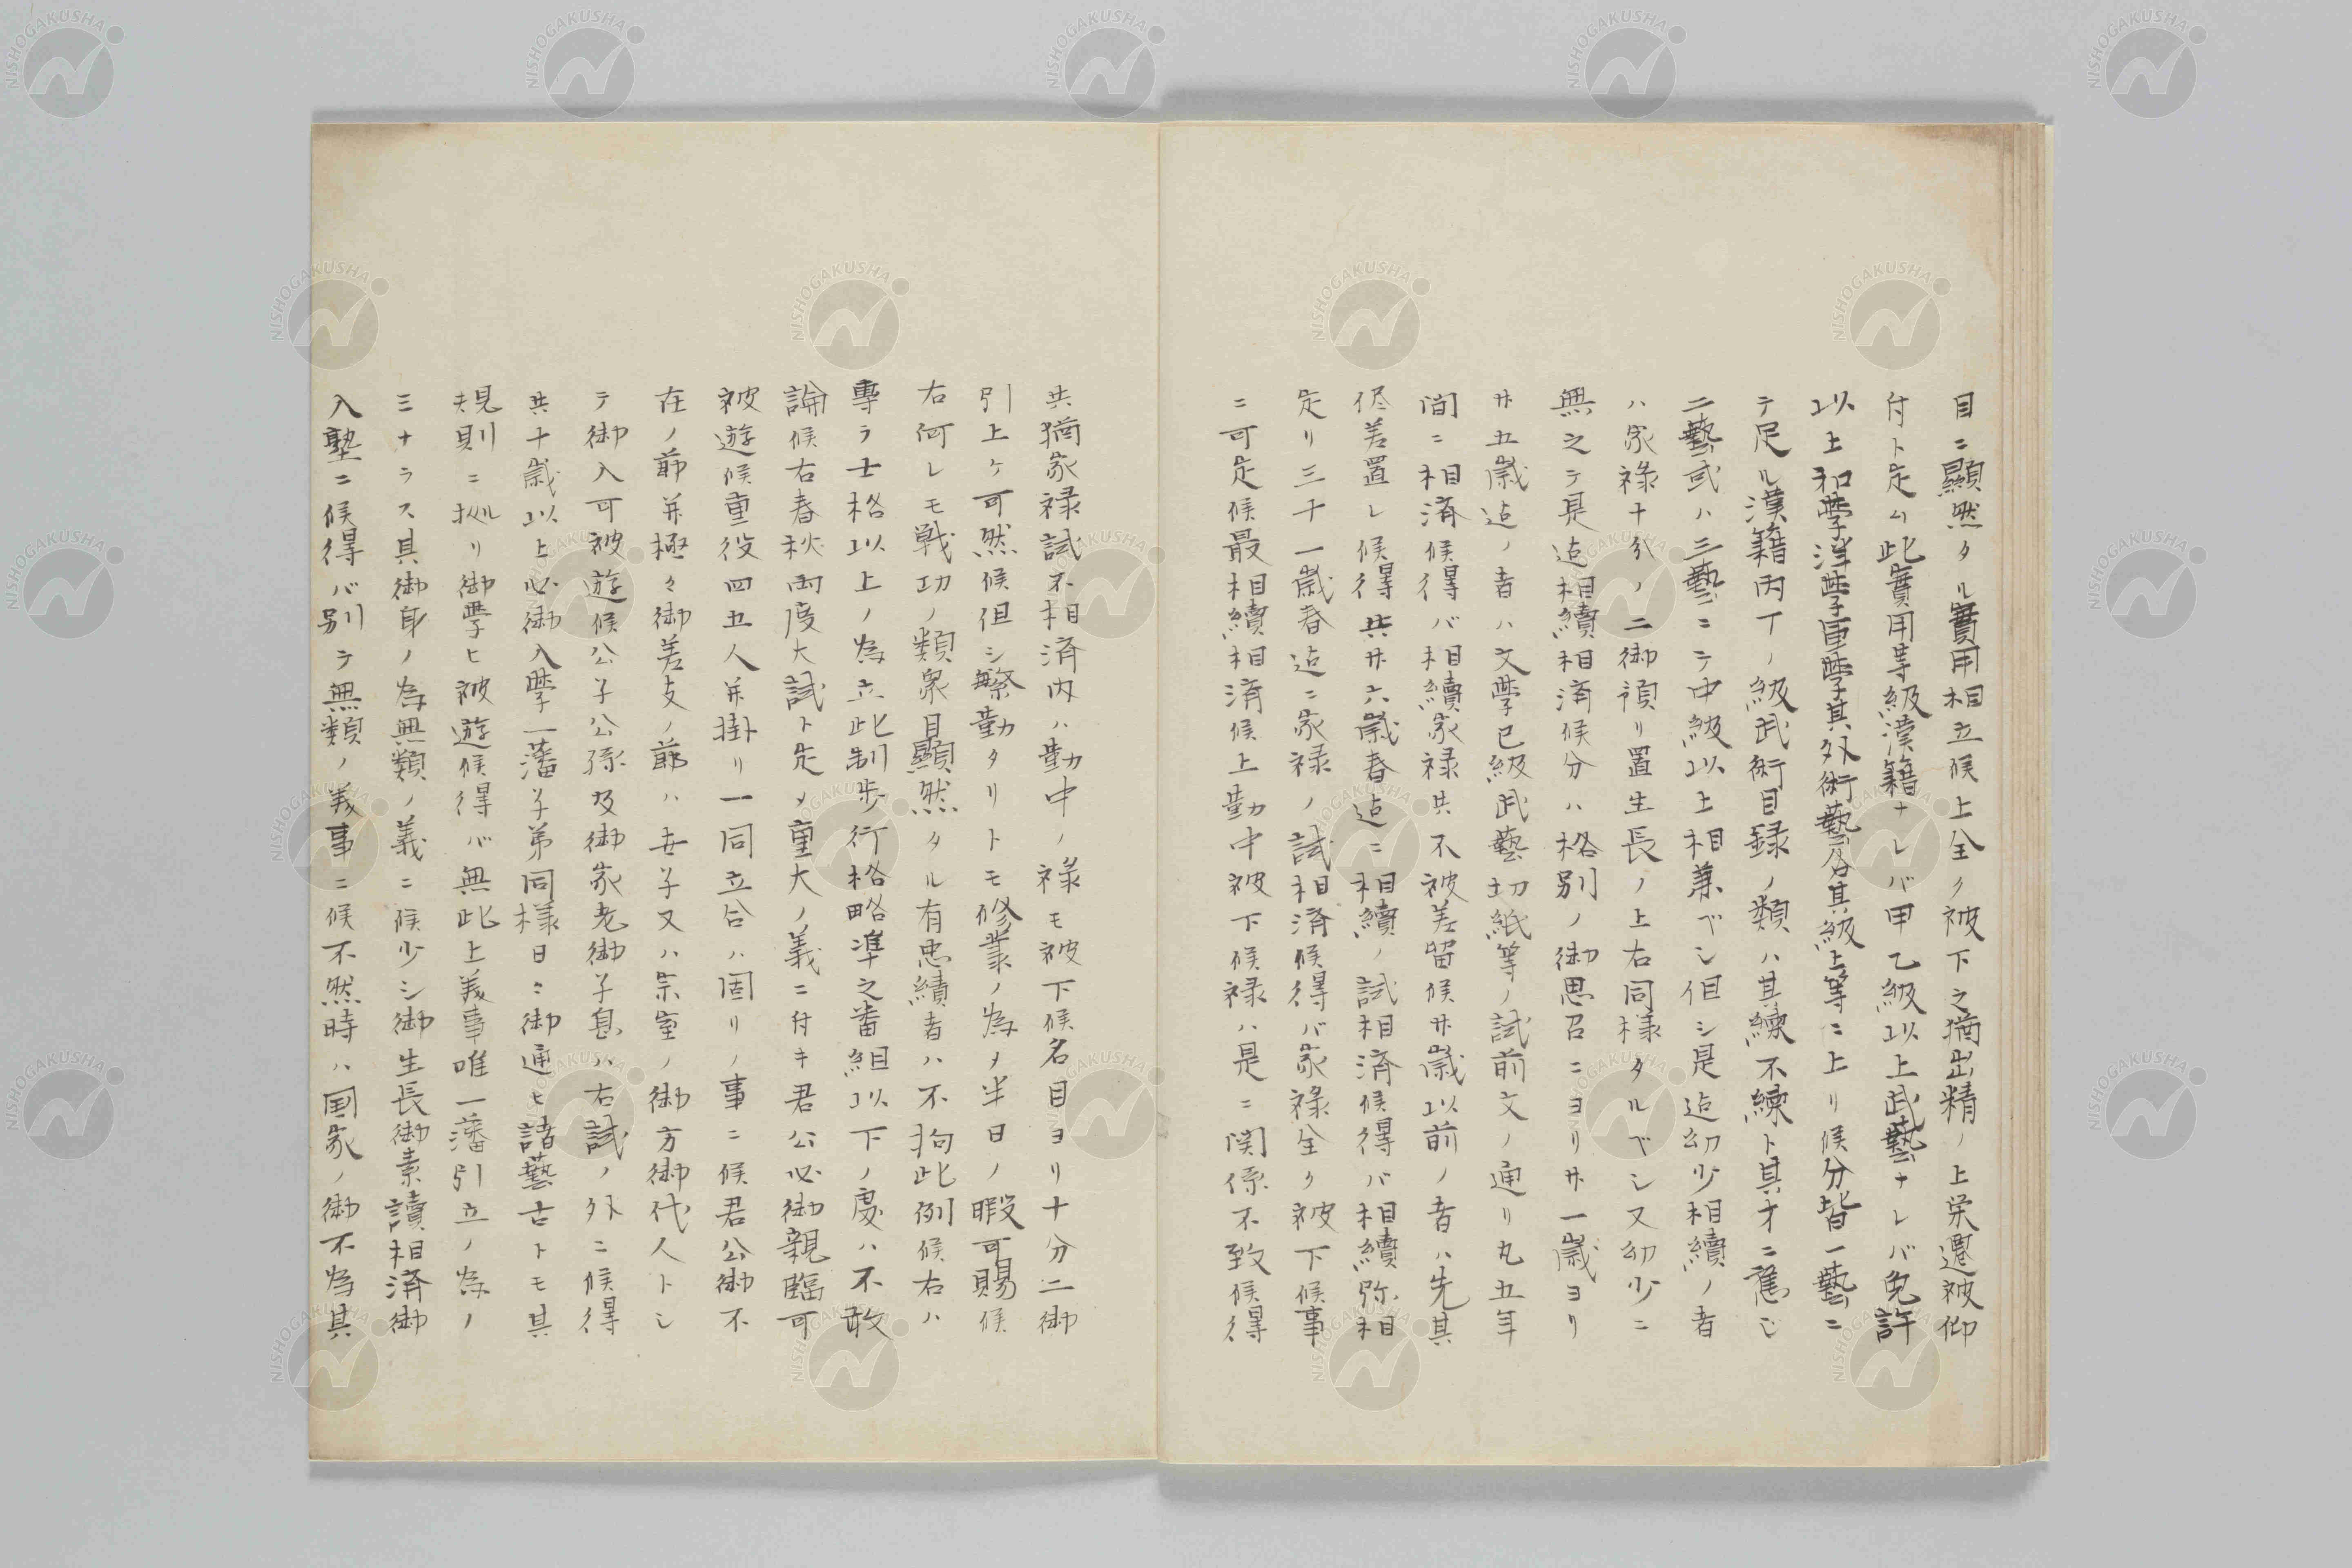 目ニ顯然タル實用相立候上全ク被下之猶出精ノ上栄遷被仰
付ト定ム此實用等級漢籍ナレバ甲乙級以上武藝ナレバ免許
以上和學洋學軍學其外術藝各其級上等ニ上リ候分皆一藝ニ
テ足ル漢籍丙丁ノ級武術目録ノ類ハ其練不練ト其才ニ應じ
二藝或ハ三藝ニテ中級以上相兼ベシ但シ是迠幼少相續ノ者
ハ家祿十分ノ二御預リ置生長ノ上右同様タルベシ又幼少ニ
無之テ是迠相續相済候分ハ格別ノ御思召ニヨリ廿一歳ヨリ
廿五歳迠ノ者ハ文學已級武藝切紙等ノ試前文ノ通リ丸五年
間ニ相済候得バ相續家禄共不被差留候廿歳以前ノ者ハ先其
侭差置レ候得共廿六歳春迠ニ相續ノ試相済候得バ相續弥相
定リ三十一歳春迠ニ家禄ノ試相済候得バ家祿全ク被下候事
ニ可定候最相續相済候上勤中被下候禄ハ是ニ関係不致候得
共猶家禄試不相済内ハ勤中ノ禄モ被下候名目ヨリ十分二御
引上ケ可然候但シ繁勤タリトモ修業ノ為メ半日ノ暇可賜候
右何レモ戦功ノ類衆目顯然タル有忠績者ハ不拘此例候右ハ
専ラ士格以上ノ為立此制歩行格略準之番組以下ノ處ハ不敢
論候右春秋両度大試ト定メ重大ノ義ニ付キ君公必御親臨可
被遊候重役四五人并掛リ一同立合ハ固リノ事ニ候君公御不
在ノ節并極々御差支ノ節ハ世子又ハ宗室ノ御方御代人トシ
テ御入可被遊候公子公孫及御家老御子息ハ右試ノ外ニ候得
共十歳以上必御入學一藩子弟同様日々御通ヒ諸藝古トモ其
規則ニ拠リ御學ヒ被遊候得バ無此上義事唯一藩引立ノ為ノ
ミナラス其御身ノ為無類ノ義ニ候少シ御生長御素讀相済御
入塾ニ候得バ別テ無類ノ義事ニ候不然時ハ国家ノ御不為其
NISHOGAKUSHA